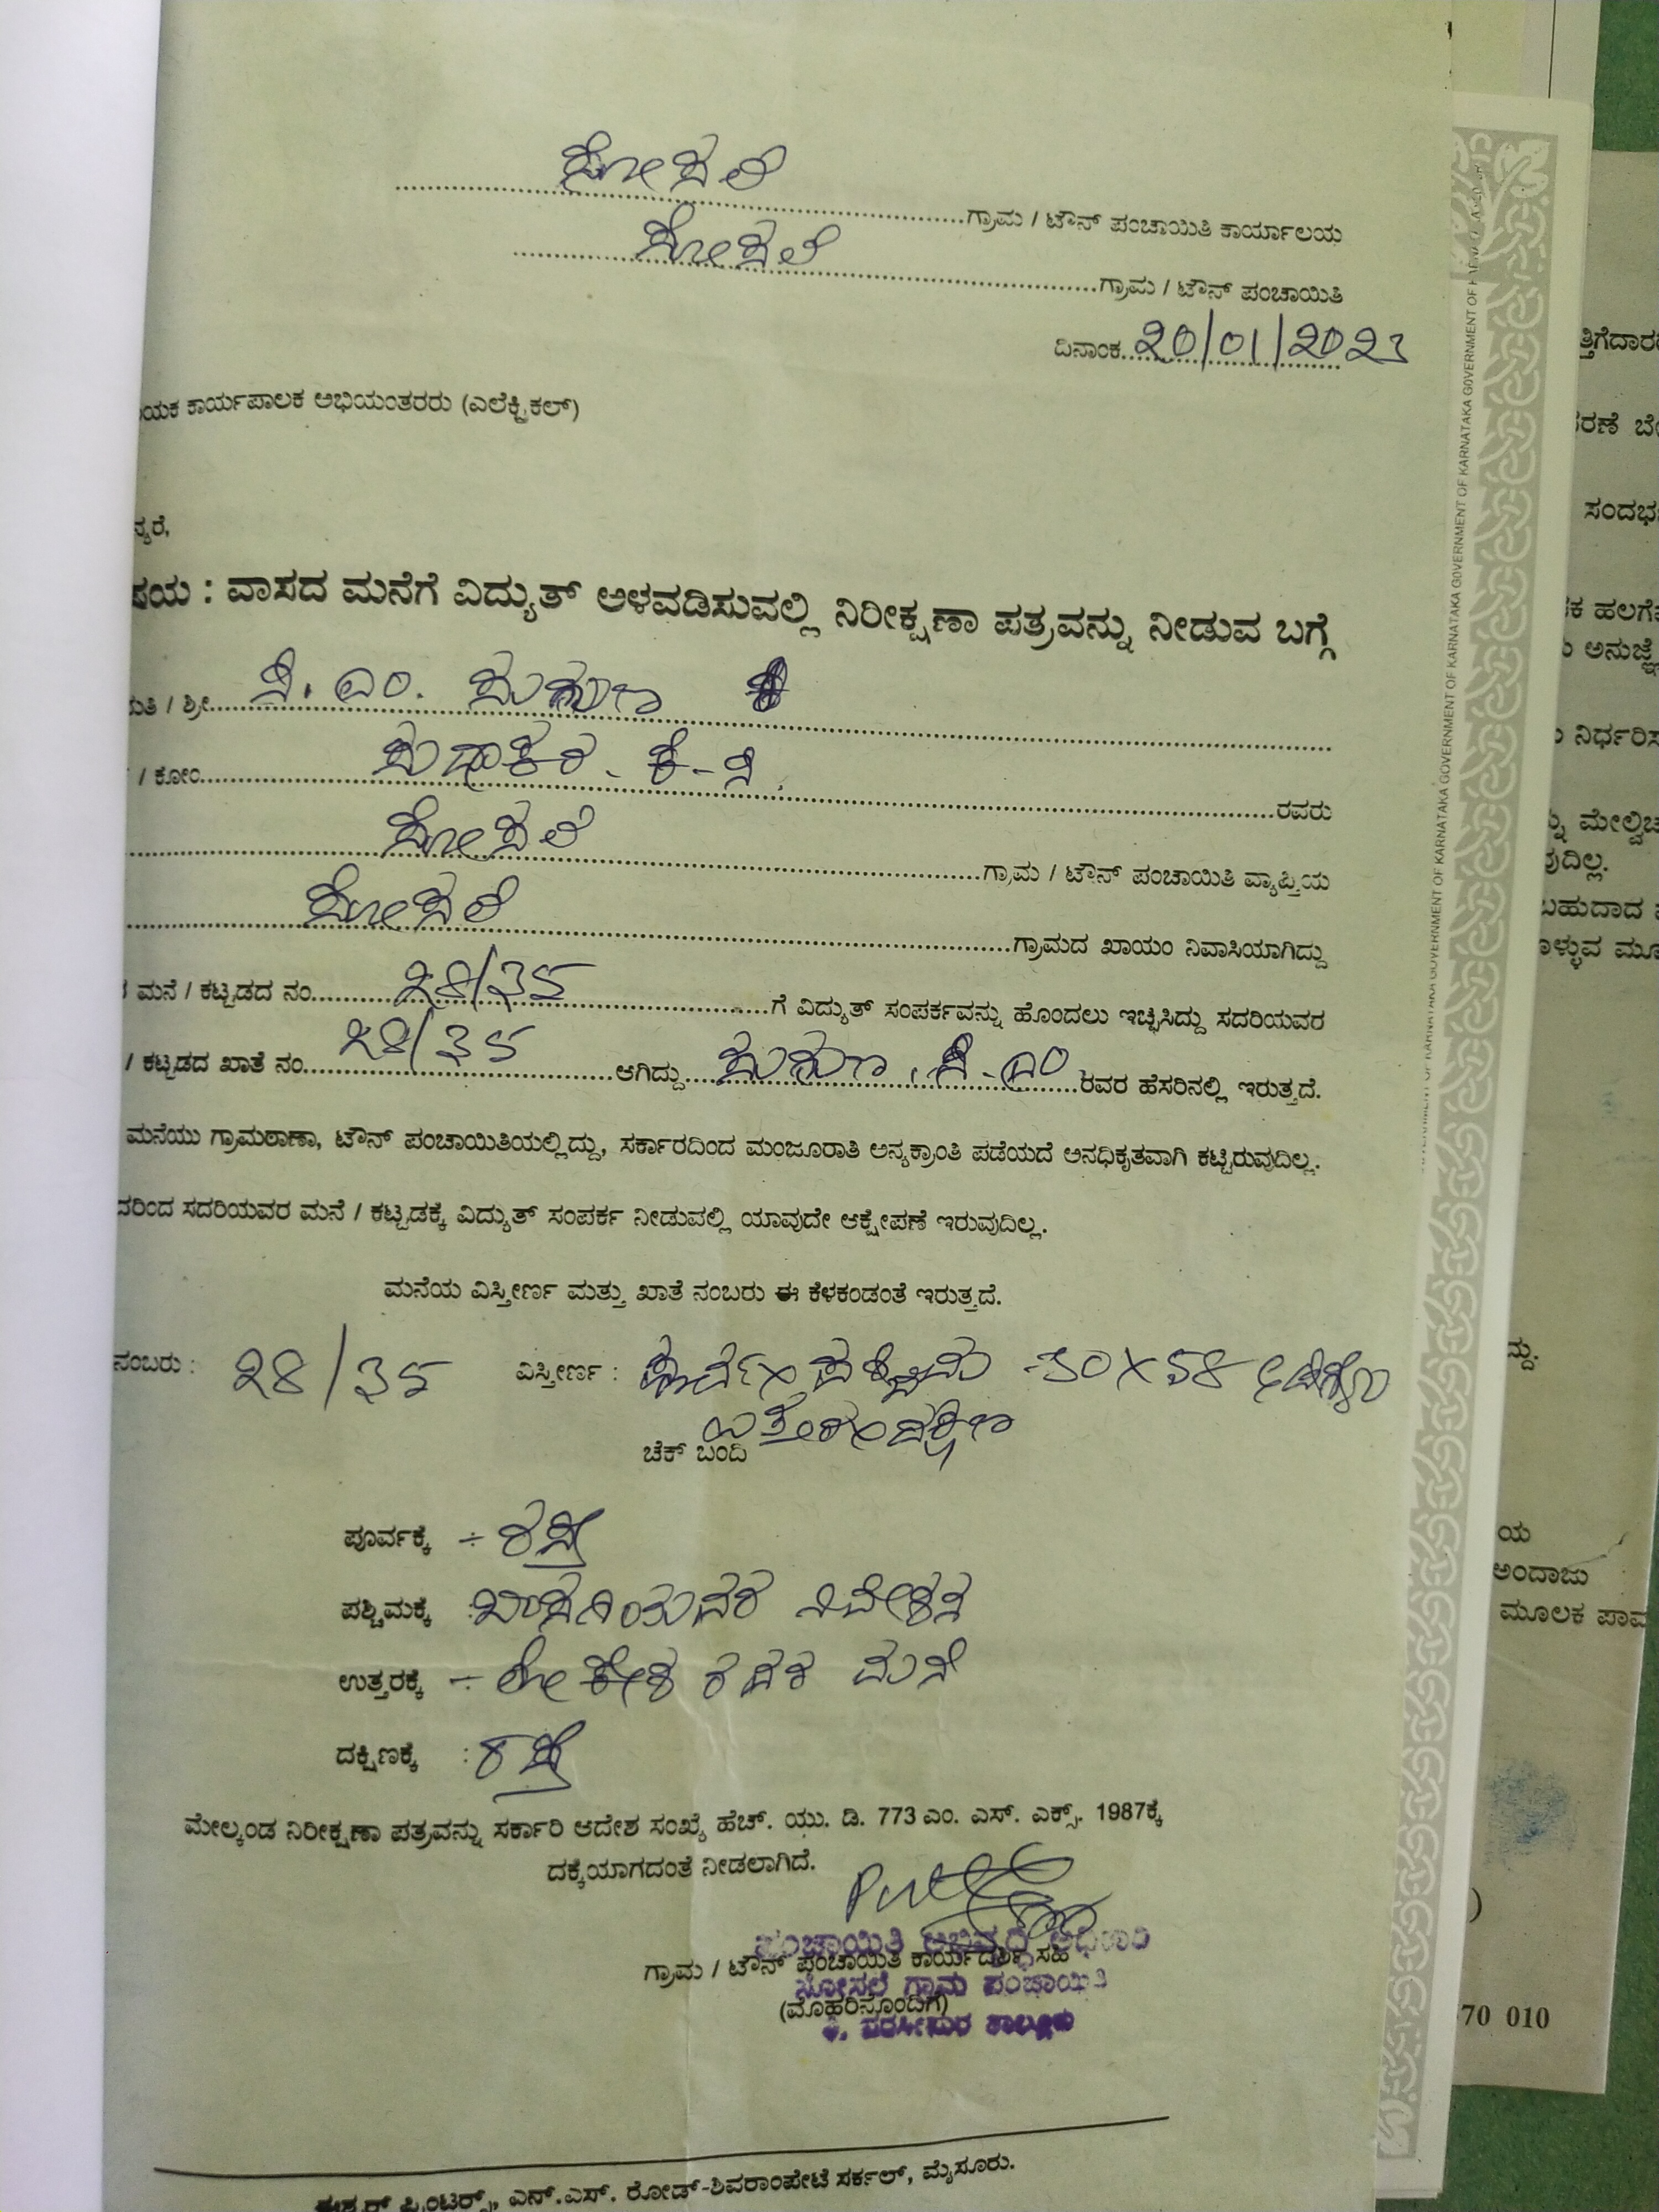 ಸೋಸಲೆ ಗ್ರಾಮ / ಟೌನ್ ಪಂಚಾಯಿತಿ ಕಾರ್ಯಾಲಯ
ಸೋಸಲೆ ಗ್ರಾಮ / ಟೌನ್ ಪಂಚಾಯಿತಿ
ದಿನಾಂಕ 20/01/2023
ಯಕ ಕಾರ್ಯಪಾಲಕ ಅಭಿಯಂತರರು (ಎಲೆಕ್ಟ್ರಿಕಲ್)
ನ್ಯರೆ,
ಷಯ : ವಾಸದ ಮನೆಗೆ ವಿದ್ಯುತ್ ಅಳವಡಿಸುವಲ್ಲಿ ನಿರೀಕ್ಷಣಾ ಪತ್ರವನ್ನು ನೀಡುವ ಬಗ್ಗೆ
ಮತಿ / ಶ್ರೀ ಸಿ. ಎಂ. ಸುಗುಣ
/ ಕೋಂ ಸುಧಾಕರ - ಕೆ - ಸಿ ರವರು
ಸೋಸಲೆ ಗ್ರಾಮ / ಟೌನ್ ಪಂಚಾಯಿತಿ ವ್ಯಾಪ್ತಿಯ
ಸೋಸಲೆ ಗ್ರಾಮದ ಖಾಯಂ ನಿವಾಸಿಯಾಗಿದ್ದು
ಮನೆ / ಕಟ್ಟಡದ ನಂ 28/35 ಗೆ ವಿದ್ಯುತ್ ಸಂಪರ್ಕವನ್ನು ಹೊಂದಲು ಇಚ್ಛಿಸಿದ್ದು ಸದರಿಯವರ
/ ಕಟ್ಟಡದ ಖಾತೆ ನಂ 28/35 ಆಗಿದ್ದು ಸುಗುಣ . ಸಿ - ಎಂ ರವರ ಹೆಸರಿನಲ್ಲಿ ಇರುತ್ತದೆ.
ಮನೆಯು ಗ್ರಾಮಠಾಣಾ, ಟೌನ್ ಪಂಚಾಯಿತಿಯಲ್ಲಿದ್ದು, ಸರ್ಕಾರದಿಂದ ಮಂಜೂರಾತಿ ಅನ್ಯಕ್ರಾಂತಿ ಪಡೆಯದೆ ಅನಧಿಕೃತವಾಗಿ ಕಟ್ಟಿರುವುದಿಲ್ಲ.
ದರಿಂದ ಸದರಿಯವರ ಮನೆ / ಕಟ್ಟಡಕ್ಕೆ ವಿದ್ಯುತ್ ಸಂಪರ್ಕ ನೀಡುವಲ್ಲಿ ಯಾವುದೇ ಆಕ್ಷೇಪಣೆ ಇರುವುದಿಲ್ಲ.
ಮನೆಯ ವಿಸ್ತೀರ್ಣ ಮತ್ತು ಖಾತೆ ನಂಬರು ಈ ಕೆಳಕಂಡಂತೆ ಇರುತ್ತದೆ.
ನಂಬರು : 28/35 ವಿಸ್ತೀರ್ಣ : ಪೂರ್ವ X ಪಶ್ಚಿಮ - 30 X 58
ಉತ್ತರ X ದಕ್ಷಿಣ
ಚೆಕ್ ಬಂದಿ
ಪೂರ್ವಕ್ಕೆ ÷ ರಸ್ತೆ
ಪಶ್ಚಿಮಕ್ಕೆ : ಖಾಸಗಿಯವರ ನಿವೇಶನ
ಉತ್ತರಕ್ಕೆ ÷ ಲೋಕೇಶ ರವರ ಮನೆ
ದಕ್ಷಿಣಕ್ಕೆ : ರಸ್ತೆ
ಮೇಲ್ಕಂಡ ನಿರೀಕ್ಷಣಾ ಪತ್ರವನ್ನು ಸರ್ಕಾರಿ ಆದೇಶ ಸಂಖ್ಯೆ ಹೆಚ್. ಯು. ಡಿ. 773 ಎಂ. ಎಸ್. ಎಕ್ಸ್. 1987ಕ್ಕೆ
ದಕ್ಕೆಯಾಗದಂತೆ ನೀಡಲಾಗಿದೆ.
ಪಂಚಾಯಿತಿ ಅಭಿವೃದ್ಧಿ ಅಧಿಕಾರಿ
ಗ್ರಾಮ / ಟೌನ್ ಪಂಚಾಯಿತಿ ಕಾರ್ಯದರ್ಶಿ ಸಹಿ
ಸೋಸಲೆ ಗ್ರಾಮ ಪಂಚಾಯಿತಿ
(ಮೊಹರಿನೊಂದಿಗೆ)
ತಿ. ನರಸೀಪುರ ತಾಲ್ಲೂಕು
ಈಶ್ವರ್ ಪ್ರಿಂಟರ್ಸ್, ಎನ್.ಎಸ್. ರೋಡ್-ಶಿವರಾಂಪೇಟೆ ಸರ್ಕಲ್, ಮೈಸೂರು.
GOVERNMENT OF KARNATAKA GOVERNMENT OF KARNATAKA GOVERNMENT OF KARNATAKA GOVERNMENT OF KARNATAKA
ತ್ತಿಗೆದಾರರ
ರಣೆ ಬೆಂ
ಸಂದರ್ಭ
ಕ ಹಲಗೆ
ಅನುಜ್ಞೆ
ನಿರ್ಧರಿಸ
ಮೇಲ್ವಿಚ
ವುದಿಲ್ಲ.
ಬಹುದಾದ
ಳ್ಳುವ ಮೂ
ದ್ದು.
ಯ
ಅಂದಾಜು
ಮೂಲಕ ಪಾವ
)
70 010